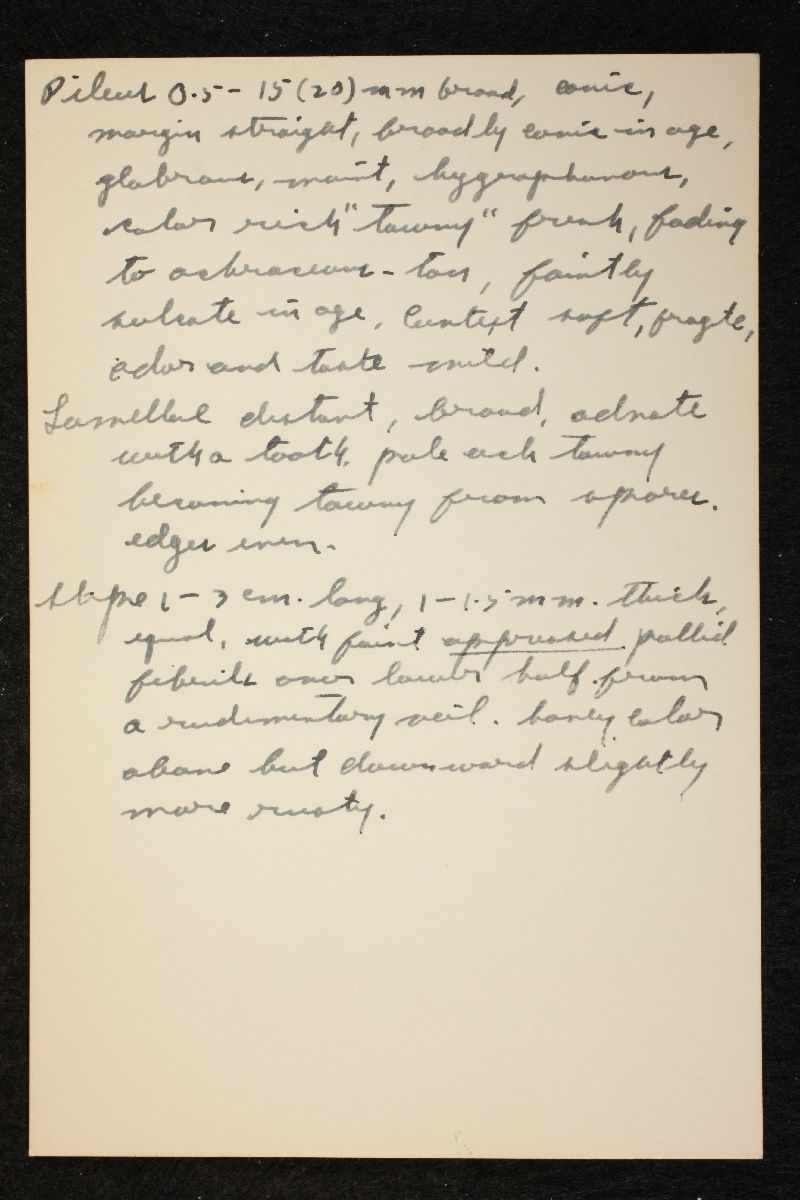 Pileus 0.5 - 15 (20) mm broad, conic,
margin straight, broadly conic in age,
glabrous, moist, hygrophanous,
color rich "tawny" fresh, fading
to ochraceous-tan, faintly
sulcate in age, Context soft, fragile,
odor and taste mild.
Lamellae distant, broad, adnate
with a tooth, pale tawny
becoming tawny from spores.
edges even.
Stipe 1 - 3 cm. long, 1 - 1.5 mm. thick,
equal, with faint appressed pallid
fibrils over lower half from
a rudimentary veil. honey color
above but downward slightly
more rusty.